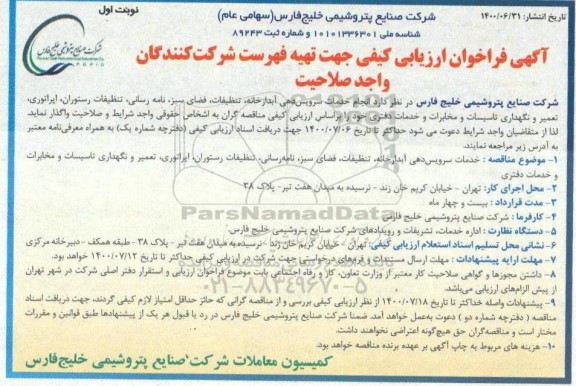 نوبت اول
شرکت صنایع پتروشیمی خلیج‌فارس(سهامی عام)
تاریخ انتشار: ۱۴۰۰/۰۶/۳۱
شناسه ملی ۱۰۱۰۱۳۳۶۳۰۱ و شماره ثبت ۸۹۲۴۳
شرکت صنایع پتروشیمی خلیج فارس
آگهی فراخوان ارزیابی کیفی جهت تهیه فهرست شرکت‌کنندگان
واجد صلاحیت
شرکت صنایع پتروشیمی خلیج فارس در نظر دارد انجام خدمات سرویس‌دهی آبدارخانه، تنظیفات، فضای سبز، نامه رسانی، تنظیفات رستوران، اپراتوری،
تعمیر و نگهداری تاسیسات و مخابرات و خدمات دفتری خود را براساس ارزیابی کیفی مناقصه گران به اشخاص حقوقی واجد شرایط و صلاحیت واگذار نماید.
لذا از متقاضیان واجد شرایط دعوت می شود حداکثر تا تاریخ ۱۴۰۰/۰۷/۰۶ جهت دریافت اسناد ارزیابی کیفی (دفترچه شماره یک) به همراه معرفی‌نامه معتبر
به آدرس زیر مراجعه نمایند.
۱- موضوع مناقصه : خدمات سرویس‌دهی آبدارخانه، تنظیفات، فضای سبز، نامه‌رسانی، تنظیفات رستوران، اپراتوری، تعمیر و نگهداری تاسیسات و مخابرات
و خدمات دفتری
۲- محل اجرای کار: تهران - خیابان کریم خان زند - نرسیده به میدان هفت تیر - پلاک ۳۸
۳- مدت قرارداد : بیست و چهار ماه
۴- کارفرما : شرکت صنایع پتروشیمی خلیج فارس
۵- دستگاه نظارت : اداره خدمات، تشریفات و رویدادهای شرکت صنایع پتروشیمی خلیج فارس
۶- نشانی محل تسلیم اسناد استعلام ارزیابی کیفی: تهران - خیابان کریم خان زند - نرسیده به میدان هفت تیر - پلاک ۳۸ - طبقه همکف - دبیرخانه مرکزی
۷- مهلت ارایه پیشنهادات : مهلت ارسال مستندات و فرم‌های درخواستی جهت شرکت در ارزیابی کیفی، حداکثر تا تاریخ ۱۴۰۰/۰۷/۱۲ خواهد بود.
۸- داشتن مجوزها و گواهی صلاحیت کار معتبر از وزارت تعاون، کار و رفاه اجتماعی بابت موضوع فراخوان ارزیابی و استقرار دفتر اصلی شرکت در شهر تهران
از پیش الزام‌های ارزیابی می‌باشد.
۹- پیشنهادات واصله حداکثر تا تاریخ ۱۴۰۰/۰۷/۱۸ از نظر ارزیابی کیفی بررسی و از مناقصه گرانی که حائز حداقل امتیاز لازم کیفی گردند، جهت دریافت اسناد
مناقصه ( دفترچه شماره دو ) دعوت به‌عمل خواهد آمد. ضمنا شرکت صنایع پتروشیمی خلیج فارس در رد یا قبول هر یک از پیشنهادها طبق قوانین و مقررات
مختار است و مناقصه‌گران حق هیچ‌گونه اعتراضی نخواهند داشت.
۱۰- هزینه های مربوط به چاپ آگهی بر عهده برنده مناقصه خواهد بود.
کمیسیون معاملات شرکت صنایع پتروشیمی خلیج‌فارس
ParsNamadData
۰۲۱-۸۸۳۴۹۶۷۰-۵